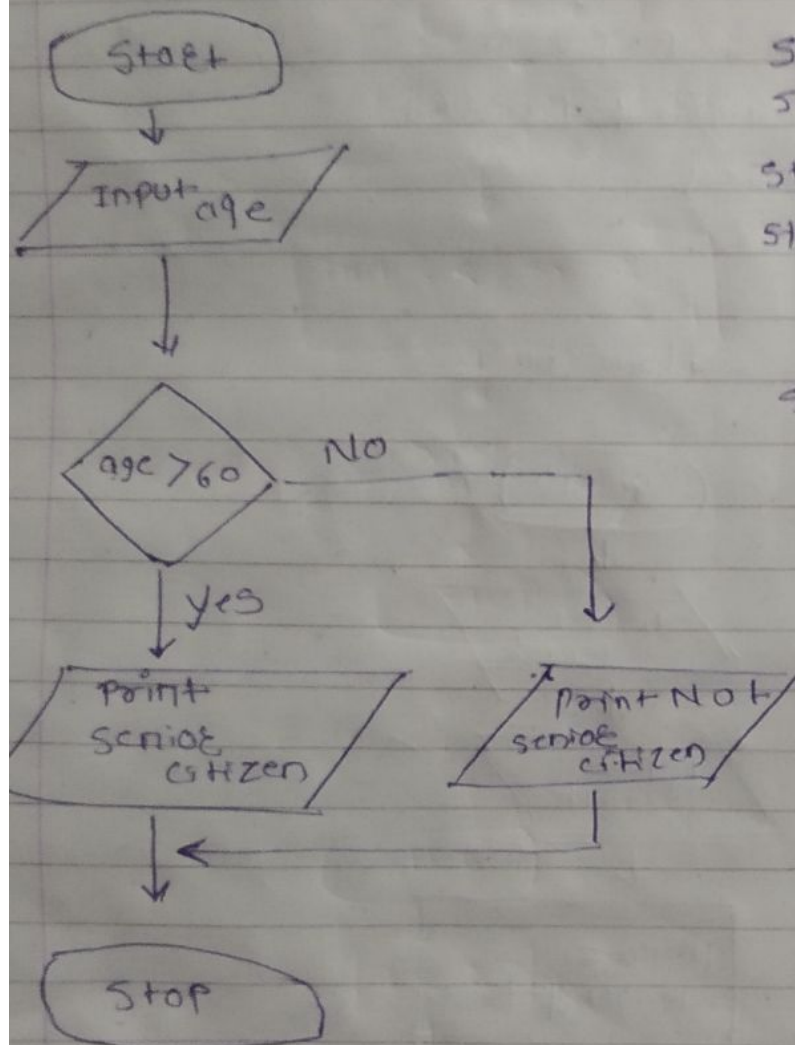 Start
Input age
age >60
No
yes
print
senior
citizen
print Not
senior
citizen
Stop